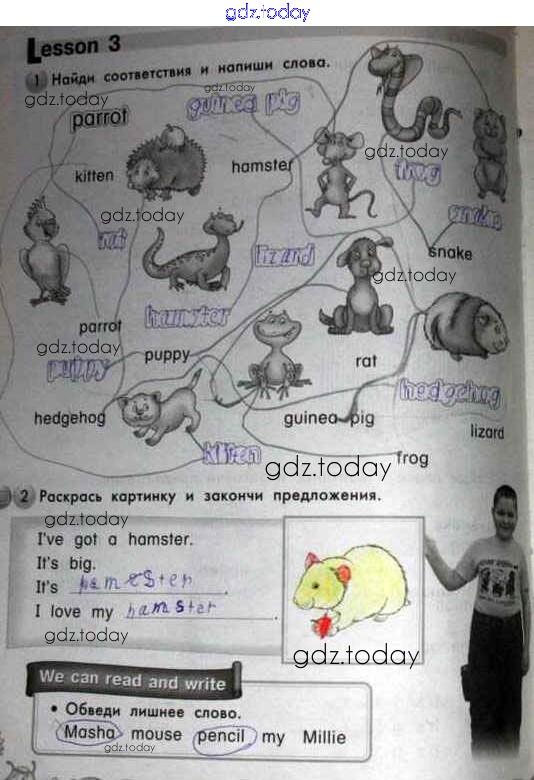 gdz.today
Lesson 3
1 Найди соответствия и напиши слова.
gdz.today
gdz.today
parrot
guinea pig
gdz.today
kitten
hamster
frog
gdz.today
snake
rat
lizard
snake
gdz.today
parrot
hamster
gdz.today
puppy
puppy
rat
hedgehog
hedgehog
guinea pig
lizard
kitten
frog
gdz.today
2 Раскрась картинку и закончи предложения.
gdz.today
I've got a hamster.
It's big.
gdz.today
It's hamester.
I love my hamster.
gdz.today
gdz.today
We can read and write
• Обведи лишнее слово.
Masha mouse pencil my Millie
gdz.today